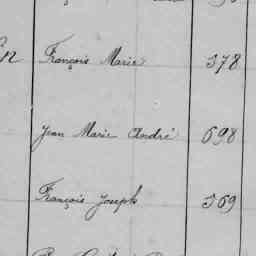 François Marie 378
Jean Marie André 698
François Joseph 369